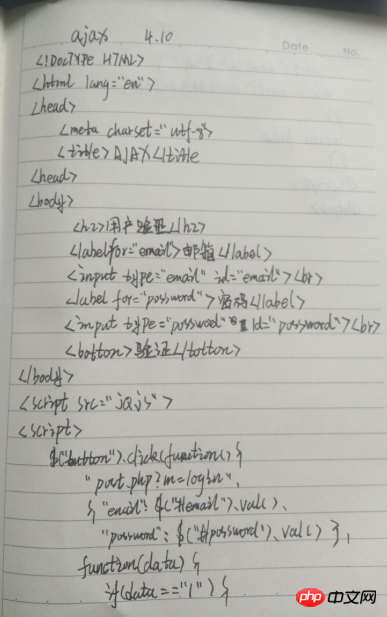 ajax 4.10
Date No.
<!DOCTYPE HTML>
<html lang="en">
<head>
<meta charset="utf-8">
<title>AJAX</title
<head>
<body>
<h2>用户验证</h2>
<labelfor="email">邮箱</label>
<input type="email" id="email"><br>
<label for="possword">密码</label>
<input type="possword" id="possword"><br>
<botton>验证</botton>
</body>
<script src="jq.js">
<script>
$("button").click(function() {
"post.php?m=login",
{ "email": $("#email").val(),
"possword": $("#possword").val() },
function(data) {
if(data =="1") {
php 中文网